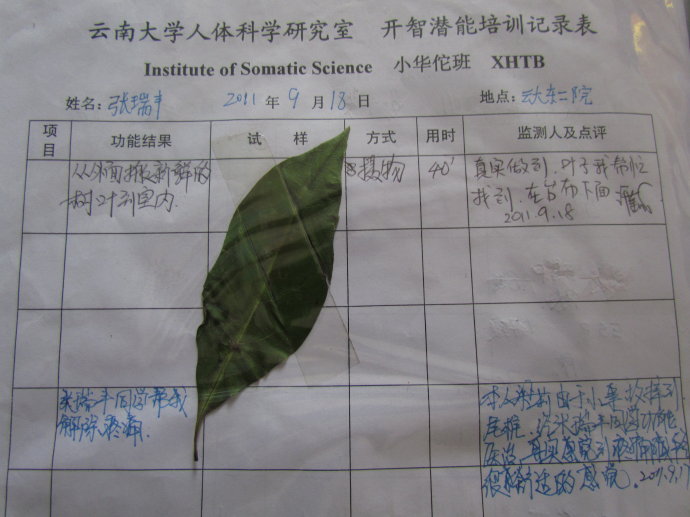 云南大学人体科学研究室 开智潜能培训记录表
Institute of Somatic Science 小华佗班 XHTB
姓名: 张瑞丰 2011 年 9 月 18 日 地点: 云大东二院
项目 功能结果 试 样 方式 用时 监测人及点评
从外面搬新鲜的
树叶到室内.
摄物
40'
真实做到.叶子我帮忙
找到.在台布下面
2011.9.18
张瑞丰同学帮我
解除疼痛.
本人
尾椎.
医治.真实感觉到疼痛
很舒适的感觉.